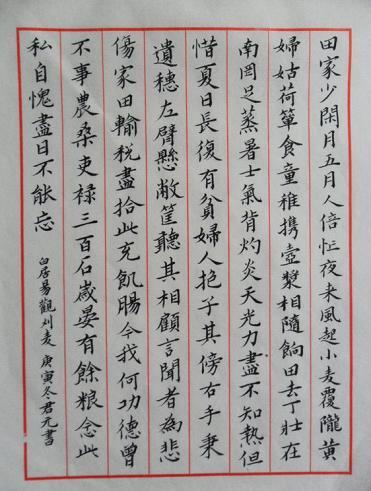 田家少閑月五月人倍忙夜来風起小麦覆隴黄
婦姑荷簞食童稚携壺漿相隨餉田去丁壯在
南罡足蒸暑士氣背灼炎天光力盡不知熱但
惜夏日長復有貧婦人抱子其傍右手秉
遺穗左臂懸敝筐聽其相顧言聞者為悲
傷家田輸税盡拾此充飢腸今我何功德曾
不事農桑吏祿三百石歲晏有餘粮念此
私自愧盡日不能忘
白居易觀刈麦 庚寅冬君元書